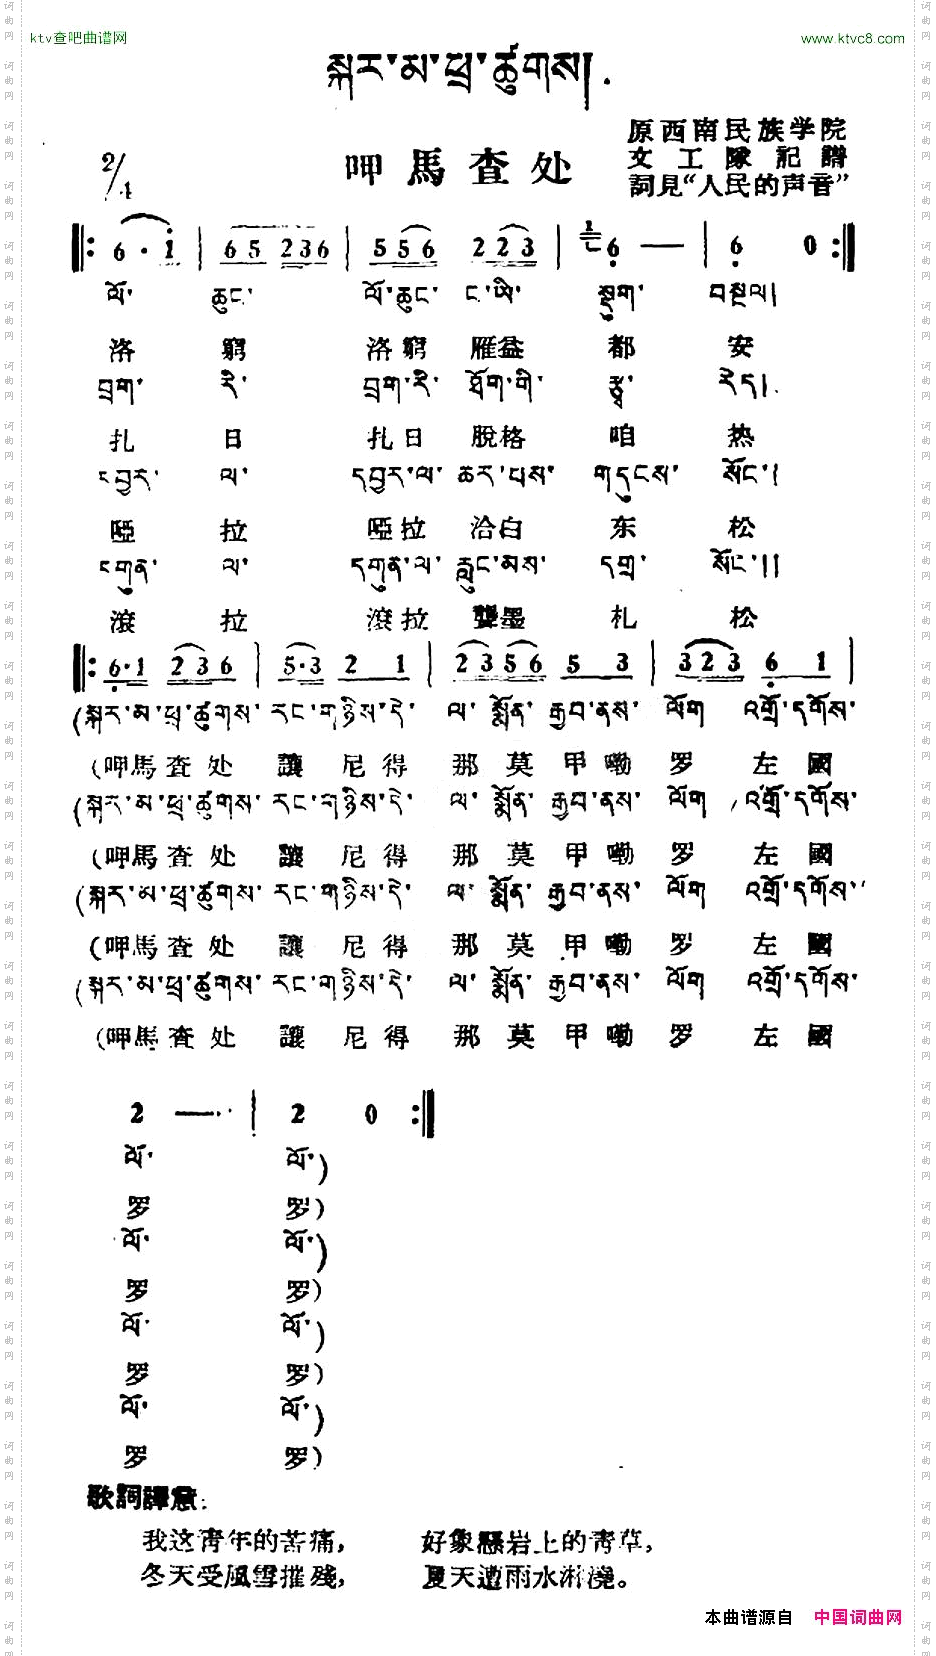 ktv查吧曲谱网
www.ktvc8.com
སྐར་མ་ཕྲ་ཚུགས།.
呷馬查处
原西南民族学院
文工隊記譜
詞見“人民的声音”
2/4
6·1 | 65 236 | 556 223 | 6 — | 6 0 :||
ལོ་ ཆུང་ ལོ་ཆུང་ ང་ཡི་ སྡུག་ བསྔལ།
洛 窮 洛窮 雁益 都 安
བྲག་ རི་ བྲག་རི་ ཐོག་གི་ རྩྭ་ རེད།
扎 日 扎日 脫格 咱 热
དབྱར་ ལ་ དབྱར་ལ་ ཆར་པས་ གདུངས་ སོང་།
啞 拉 啞拉 洽白 东 松
དགུན་ ལ་ དགུན་ལ་ རླུང་མས་ དགྲ་ སོང་།།
滾 拉 滾拉 龔墨 札 松
||: 6·1 236 | 5·3 2 1 | 2356 5 3 | 323 6 1 |
(སྐར་མ་ཕྲ་ཚུགས་ རང་གཉིས་དེ་ ལ་ སྨོན་ རྒྱབ་ནས་ ལོག འགྲོ་དགོས་
(呷馬查处 讓 尼得 那 莫 甲嘞 罗 左國
(སྐར་མ་ཕྲ་ཚུགས་ རང་གཉིས་དེ་ ལ་ སྨོན་ རྒྱབ་ནས་ ལོག འགྲོ་དགོས་
(呷馬查处 讓 尼得 那 莫 甲嘞 罗 左國
(སྐར་མ་ཕྲ་ཚུགས་ རང་གཉིས་དེ་ ལ་ སྨོན་ རྒྱབ་ནས་ ལོག འགྲོ་དགོས་
(呷馬查处 讓 尼得 那 莫 甲嘞 罗 左國
(སྐར་མ་ཕྲ་ཚུགས་ རང་གཉིས་དེ་ ལ་ སྨོན་ རྒྱབ་ནས་ ལོག འགྲོ་དགོས་
(呷馬查处 讓 尼得 那 莫 甲嘞 罗 左國
2 — | 2 0 :||
ལོ་ ལོ་)
罗 罗)
ལོ་ ལོ་)
罗 罗)
ལོ་ ལོ་)
罗 罗)
ལོ་ ལོ་)
罗 罗)
歌詞譯意:
我这青年的苦痛, 好象懸岩上的青草,
冬天受風雪摧殘, 夏天遭雨水淋澆。
本曲谱源自 中国词曲网